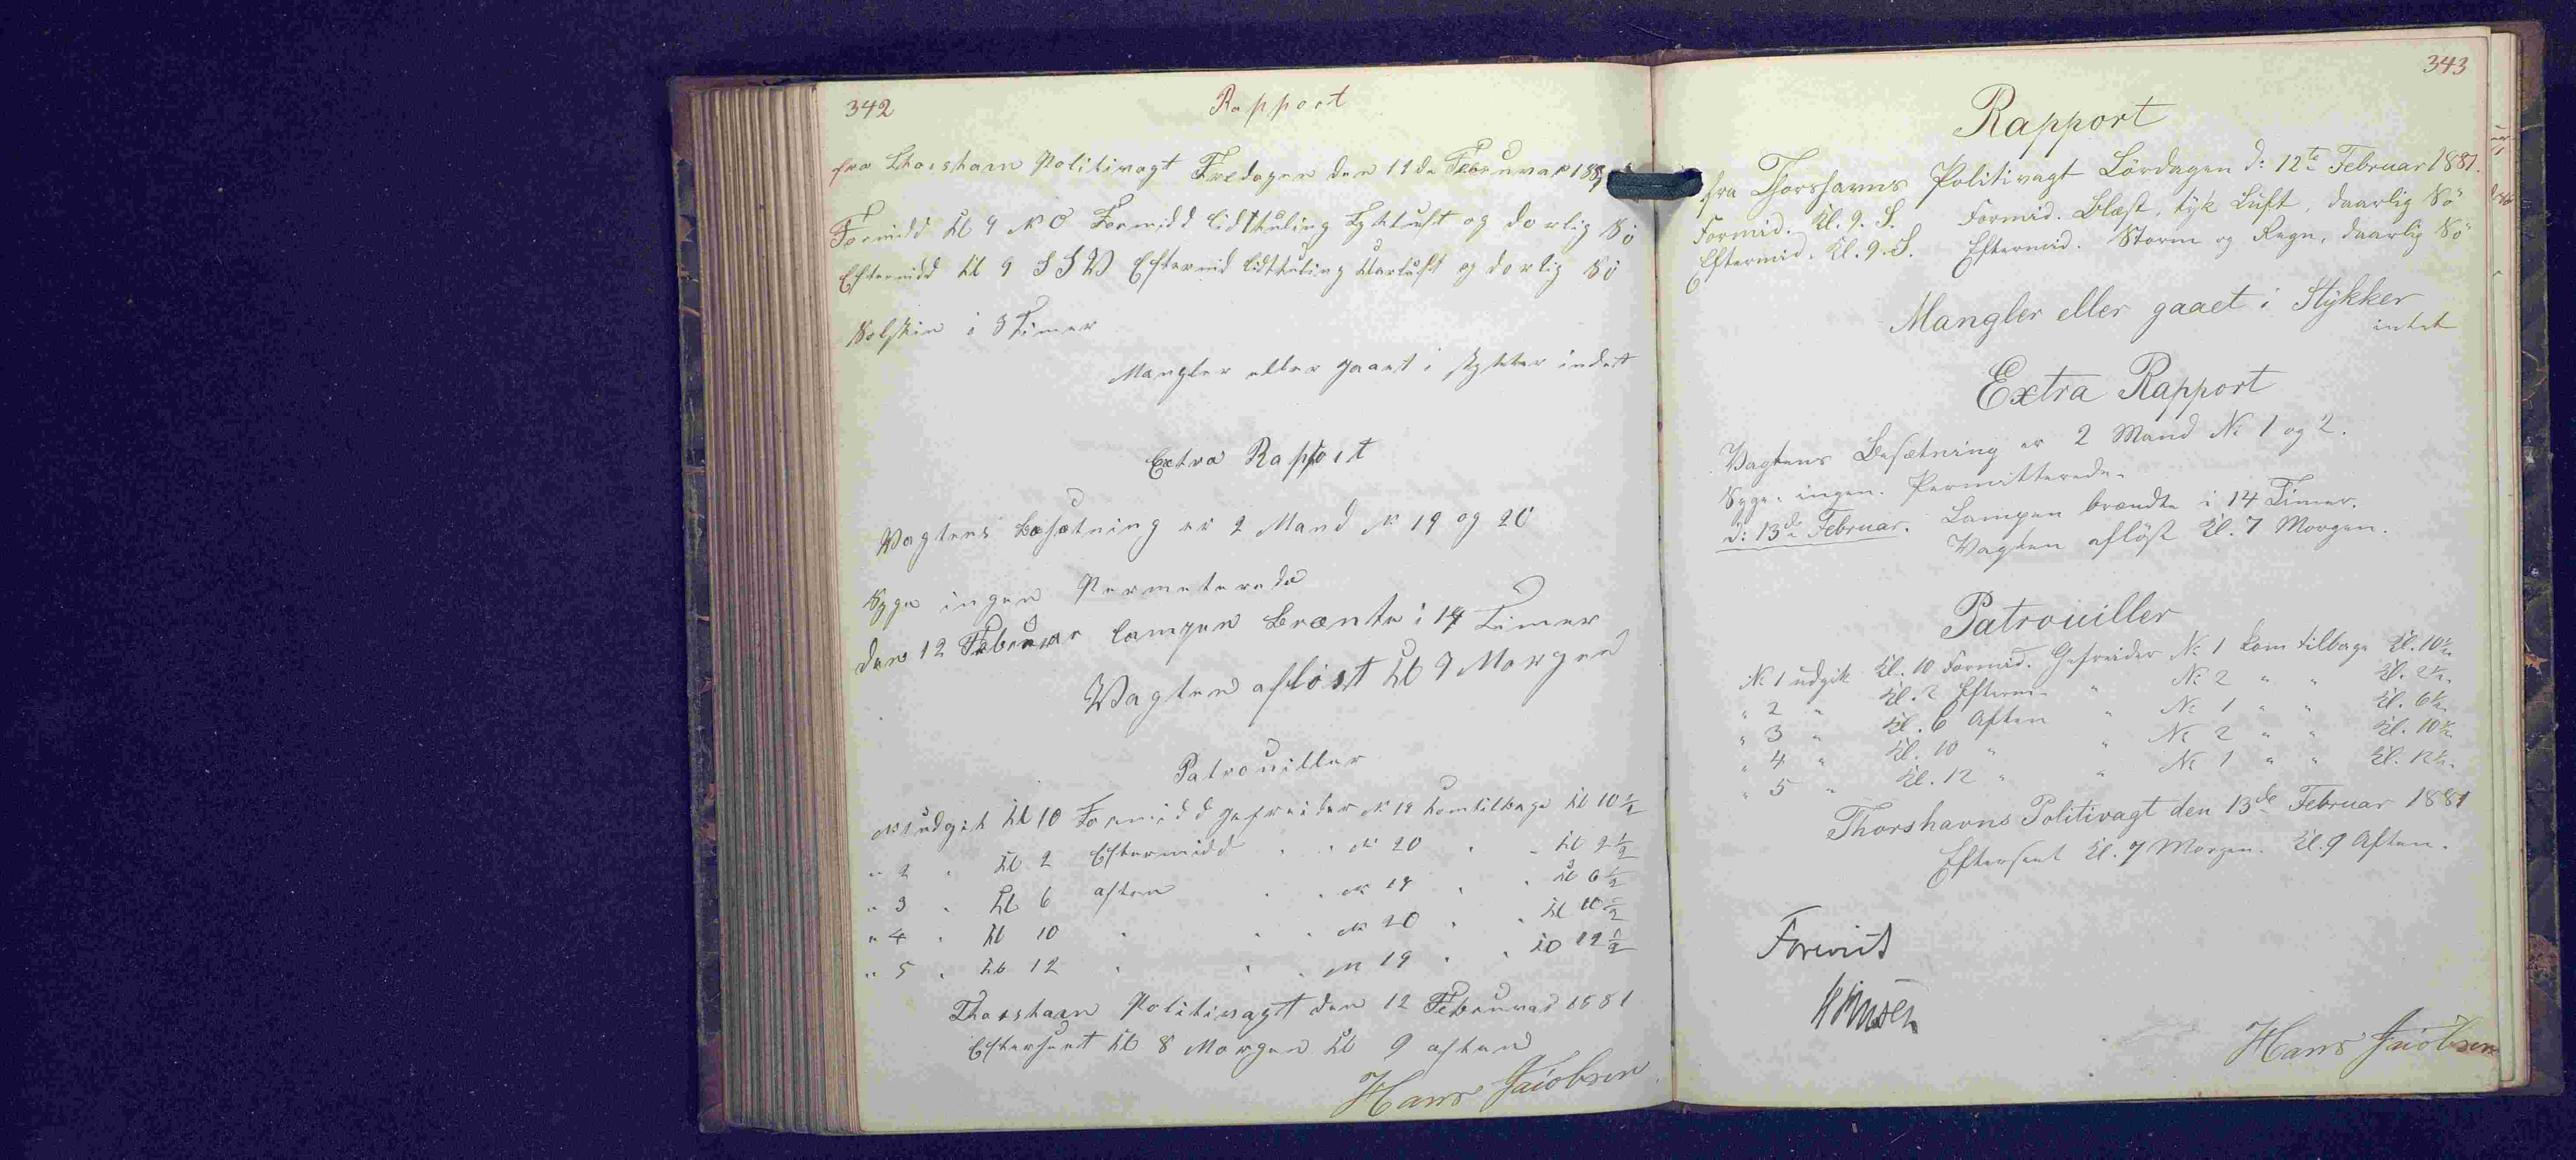 342
Rapport
fra Thorshavn Politivagt Fredagen den 11de Februar 1881
Formidd Kl 9 N O Formidd lidtkuling Tykluft og dorlig Sö
Eftermidd Kl 9 S S W Eftermid lidtkuling klarluft og dorlig Sö
Solskin i 3 Timer
Mangler eller gaaet i stykker indet
Extra Rapport
Vagtens Besætning er 2 Mand N 19 og 20
Syge ingen Permeterede
den 12 Februar lampen Brænte i 14 Timer
Vagten aflöst Kl 7 Morgen
Patrouiller
N 1 udgik Kl 10 Formidd gefreider N 19 komtilbage Kl 10 1/2
" 2 " Kl 2 Eftermidd " " N 20 " " Kl 2 1/2
" 3 " Kl 6 aften " " N 19 " " Kl 6 1/2
" 4 " Kl 10 " " " N 20 " " Kl 10 1/2
" 5 " Kl 12 " " " N 19 " " Kl 12 1/2
Thorshavn Politivagt den 12 Februar 1881
Efterseet Kl 8 Morgen Kl 9 aften
Hans Jacobsen
343
Rapport
fra Thorshavns Politivagt Lördagen d: 12te Februar 1881.
Formid. Kl. 9. S. Formid. Blæst, tyk Luft, daarlig Sö
Eftermid. Kl. 9. S. Eftermid. Storm og Regn, daarlig Sö
Mangler eller gaaet i Stykker
intet
Extra Rapport
Vagtens Besætning er 2 Mand No 1 og 2.
Syge ingen. Permitterede
d: 13de Februar. Lampen brændte i 14 Timer.
Vagten aflöst Kl. 7 Morgen.
Patrouiller
No 1 udgik Kl. 10 Formid. Gefreider No 1 kom tilbage Kl. 10 1/2
" 2 " Kl. 2 Efterm. " No 2 " " Kl. 2 1/2
" 3 " Kl. 6 Aften " No 1 " " Kl. 6 1/2
" 4 " Kl. 10 " " No 2 " " Kl. 10 1/2
" 5 " Kl. 12 " " No 1 " " Kl. 12 1/2
Thorshavns Politivagt den 13de Februar 1881
Efterseet Kl. 7 Morgen. Kl. 9 Aften.
Forevist
Hans Jacobsen